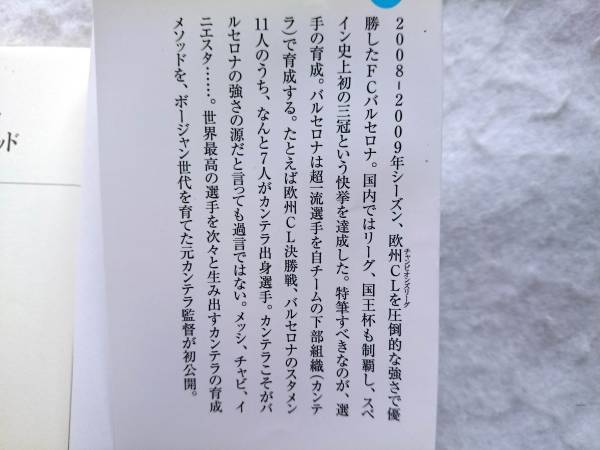 2008-2009年シーズン、欧州CLを圧倒的な強さで優
チャンピオンズリーグ
勝したFCバルセロナ。国内ではリーグ、国王杯も制覇し、スペ
イン史上初の三冠という快挙を達成した。特筆すべきなのが、選
手の育成。バルセロナは超一流選手を自チームの下部組織(カンテ
ラ)で育成する。たとえば欧州CL決勝戦、バルセロナのスタメン
11人のうち、なんと7人がカンテラ出身選手。カンテラこそがバ
ルセロナの強さの源だと言っても過言ではない。メッシ、チャビ、イ
ニエスタ……。世界最高の選手を次々と生み出すカンテラの育成
メソッドを、ボージャン世代を育てた元カンテラ監督が初公開。
ッド